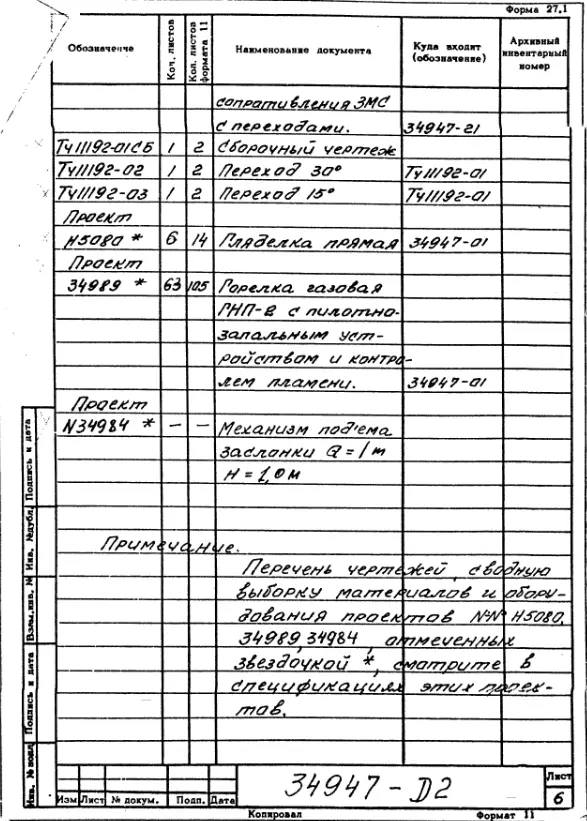 Форма 27.1
Обозначение Кол. листов Кол. листов формата 11 Наименование документа Куда входит (обозначение) Архивный инвентарный номер
сопративления ЗМС
с переходами. 34947-21
ТУ11192-01СБ 1 2 Сборочный чертеж
ТУ11192-02 1 2 Переход 30° ТУ11192-01
ТУ11192-03 1 2 Переход 15° ТУ11192-01
Проект
Н5080 * 6 14 Гляделка прямая 34947-01
Проект
34989 * 63 105 Горелка газовая
ГНП-8 с пилотно-
запальным уст-
ройством и контро-
лем пламени. 34947-01
Проект
N34984 * — — Механизм под'ема
заслонки Q = 1 т
H = 1,0 м
Примечание.
Перечень чертежей, сводную
выборку материалов и обору-
дования проектов №№ Н5080,
34989, 34984, отмеченных
звездочкой *, смотрите в
спецификациях этих проек-
тов.
Подпись и дата
Инв. №дубл.
Взам.инв. №
Подпись и дата
Инв. №подл.
34947-Д2
Лист
6
Изм Лист № докум. Подп. Дата
Копировал Формат 11